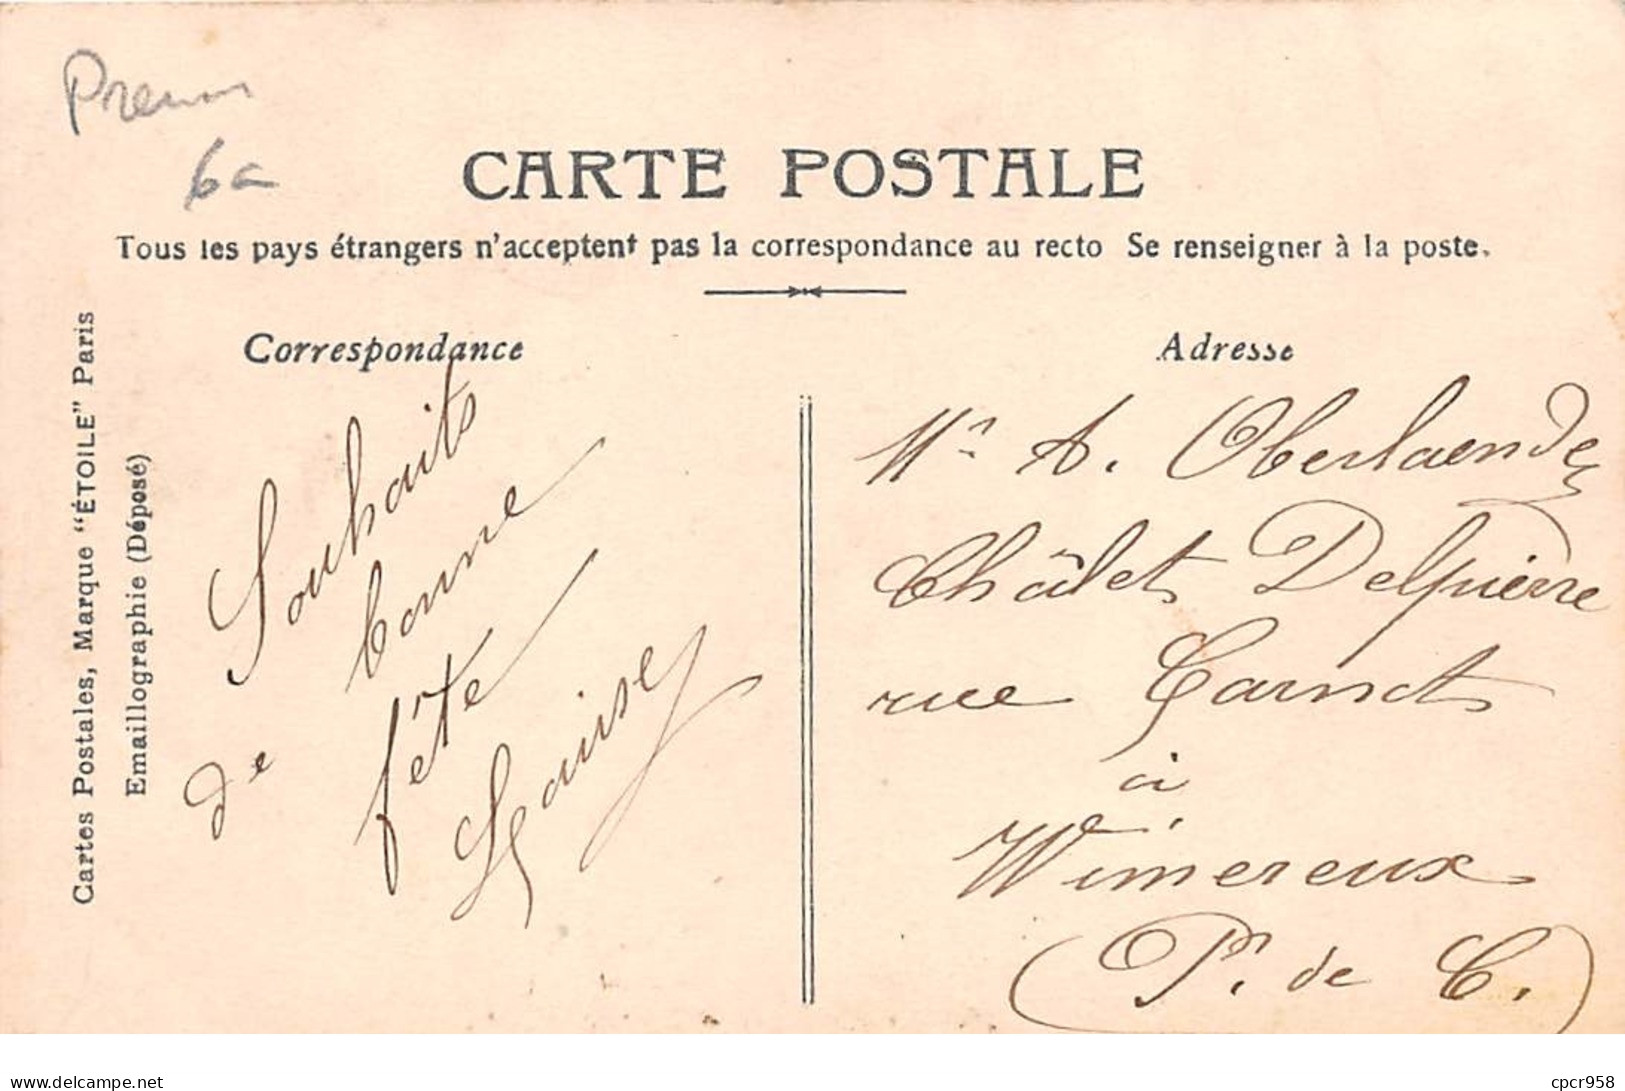 Prenom
6a
CARTE POSTALE
Tous les pays étrangers n'acceptent pas la correspondance au recto Se renseigner à la poste.
Correspondance
Souhaits
de bonne
fête
Louise
Adresse
Mr A. Oberlaender
Châlet Delpierre
rue Carnot
à
Wimereux
(P. de C.)
Cartes Postales, Marque "ÉTOILE" Paris
Emaillographie (Déposé)
www.delcampe.net
cpcr958